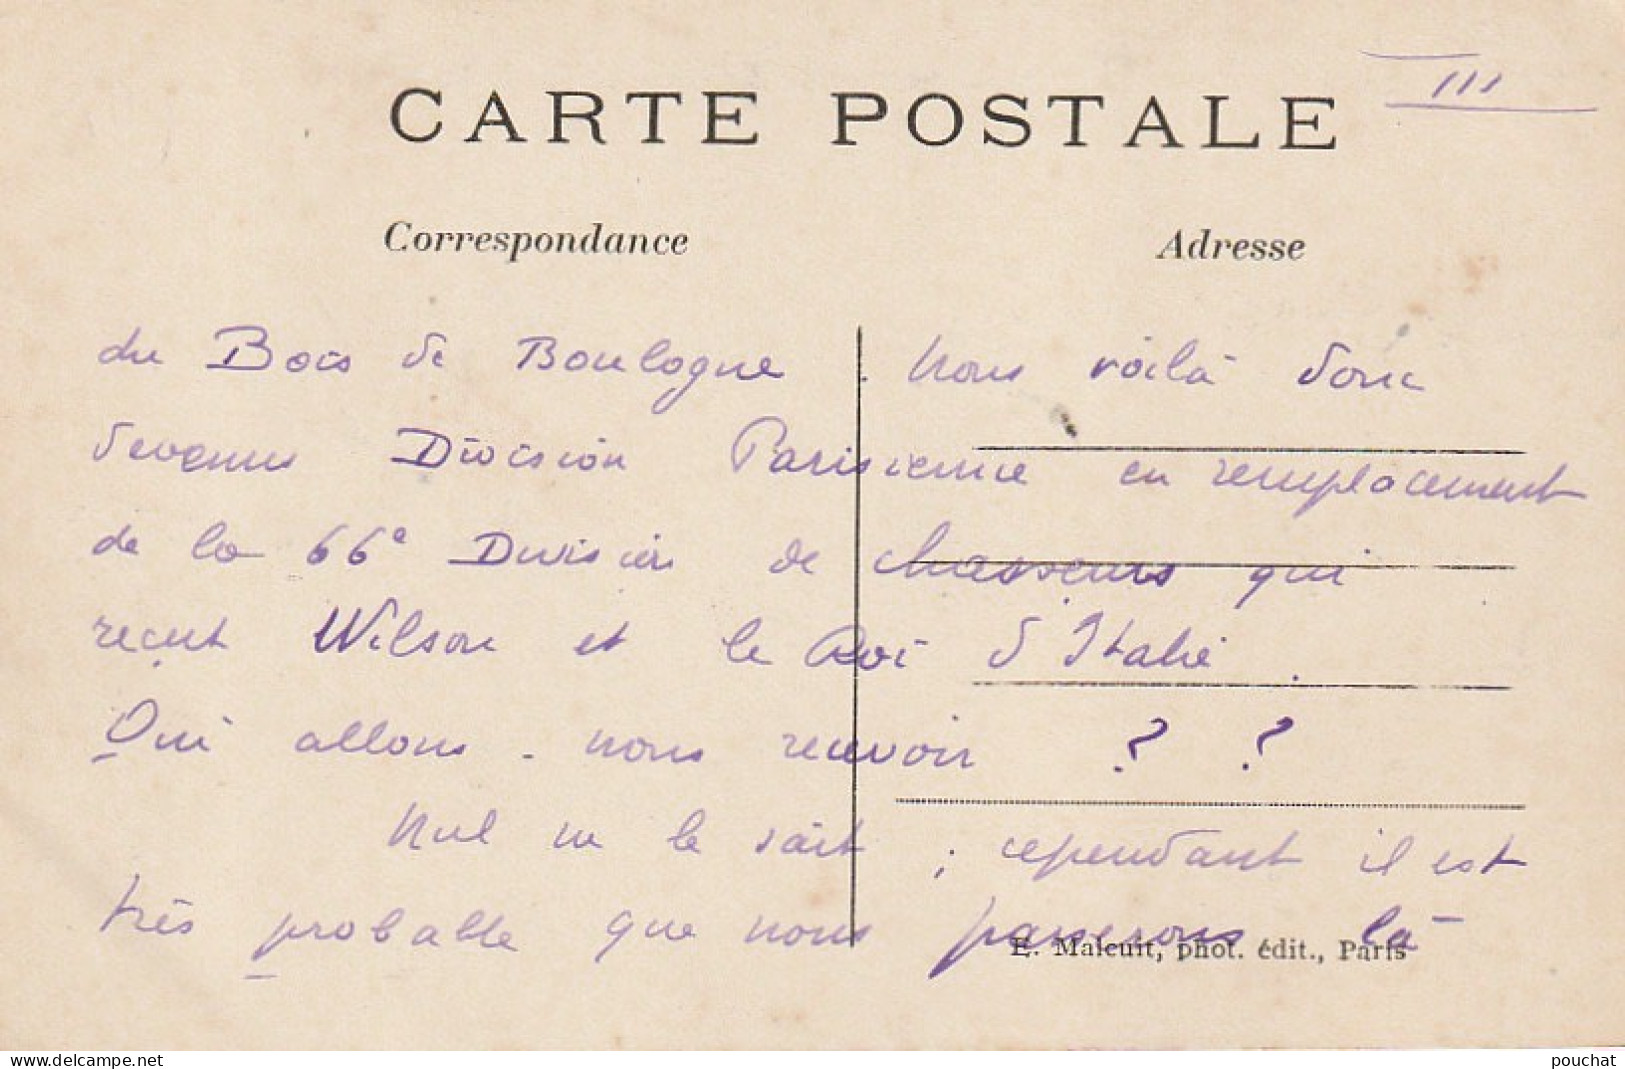 III
CARTE POSTALE
Correspondance
Adresse
du Bois de Boulogne . Nous voilà donc
devenus Division Parisienne en remplacement
de la 66e Division de chasseurs qui
reçut Wilson et le Roi d'Italie.
Qui allons-nous recevoir ? ?
Nul ne le sait ; cependant il est
très probable que nous passerons là
E. Malcuit, phot. édit., Paris
www.delcampe.net
pouchat